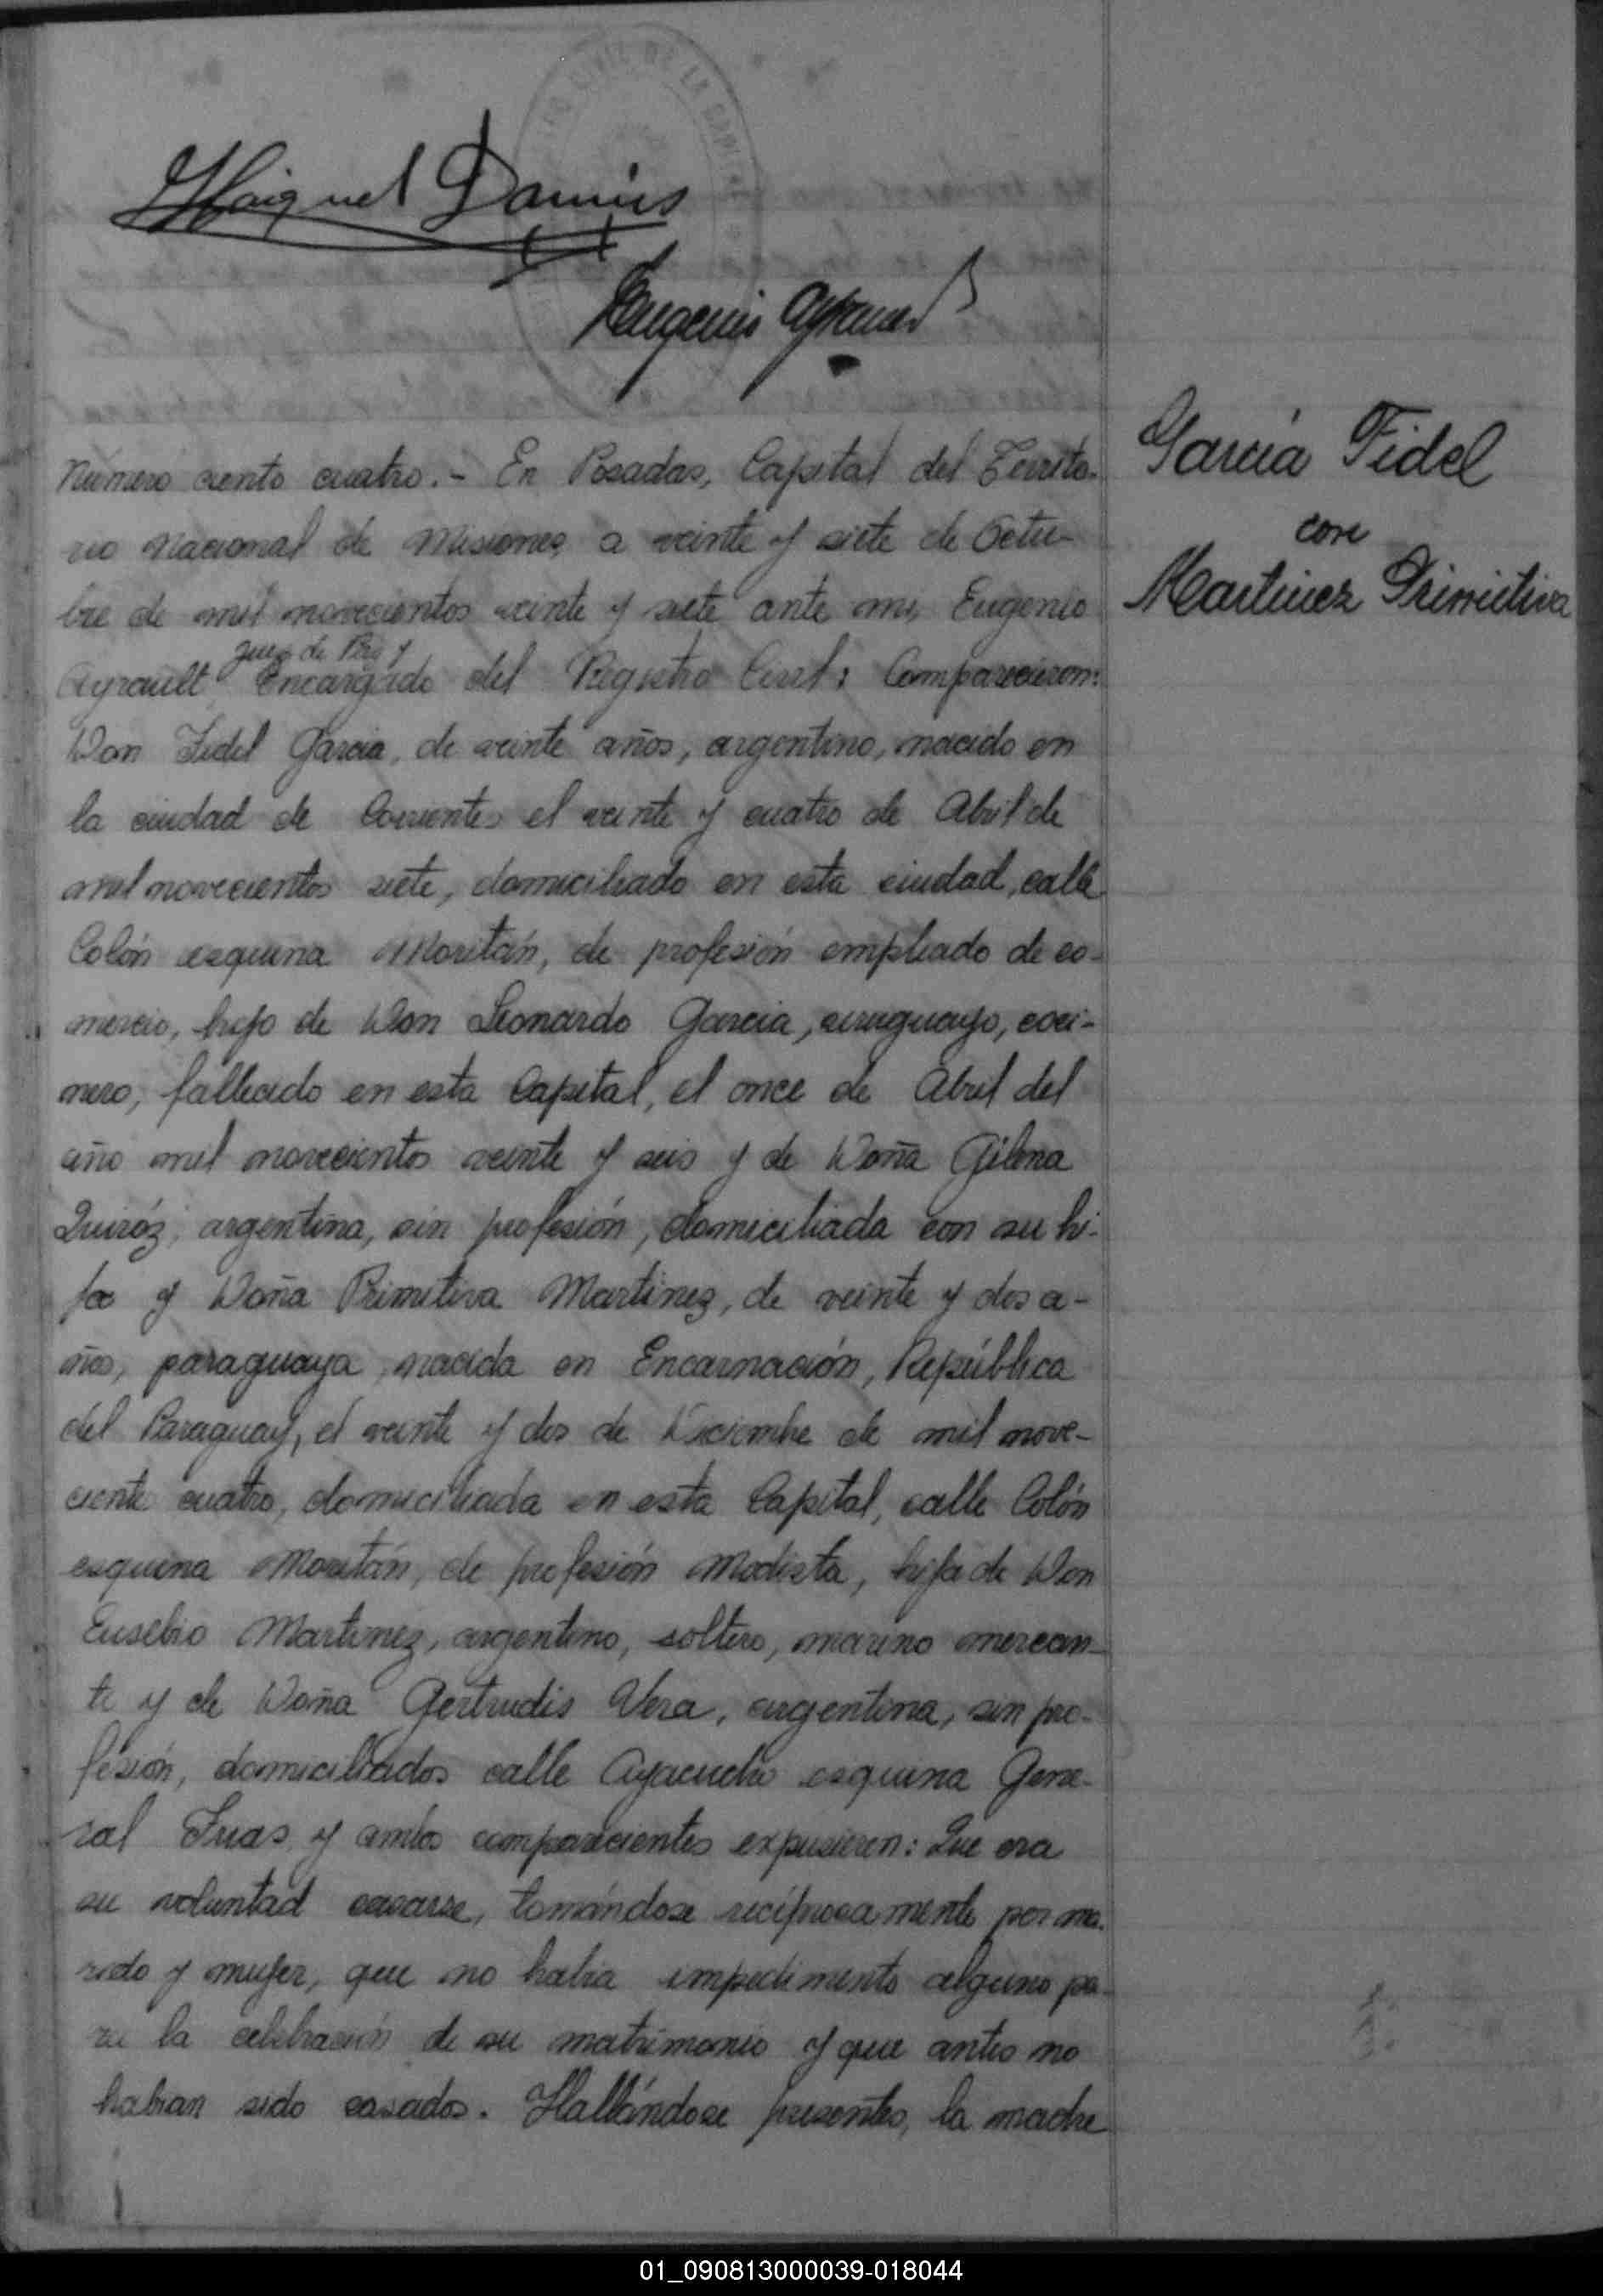 Miguel
Eugenio Ayrault
García Fidel
con
Martinez Primitiva
Número ciento cuatro.- En Posadas, Capital del Territo-
rio Nacional de Misiones a veinte y siete de Octu-
bre de mil novecientos veinte y siete ante mi, Eugenio
Juez de Paz y
Ayrault Encargado del Registro Civil: Comparecieron:
Don Fidel Garcia, de veinte años, argentino, nacido en
la ciudad de Corrientes el veinte y cuatro de Abril de
mil novecientos siete, domiciliado en esta ciudad, calle
Colón esquina Moritán, de profesión empleado de co-
mercio, hijo de Don Leonardo Garcia, uruguayo, coci-
nero, fallecido en esta Capital, el once de Abril del
año mil novecientos veinte y seis y de Doña Gilena
Quiróz, argentina, sin profesión, domiciliada con su hi-
jo y Doña Primitiva Martinez, de veinte y dos a-
ños, paraguaya, nacida en Encarnación, República
del Paraguay, el veinte y dos de Diciembre de mil nove-
ciento cuatro, domiciliada en esta Capital, calle Colón
esquina Moritán, de profesión Modista, hija de Don
Eusebio Martinez, argentino, soltero, marino mercan-
te y de Doña Gertrudis Vera, argentina, sin pro-
fesión, domiciliados calle Ayacucho esquina Gene-
ral Frias y ambos comparecientes expusieron: Que era
su voluntad casarse, tomándose recíprocamente por ma-
rido y mujer, que no habia impedimento alguno pa-
ra la celebración de su matrimonio y que antes no
habian sido casados. Hallándose presentes, la madre
01_090813000039-018044